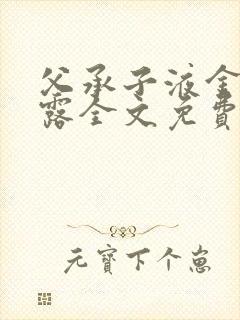 父承子液金
露全文免费
元寶下个崽